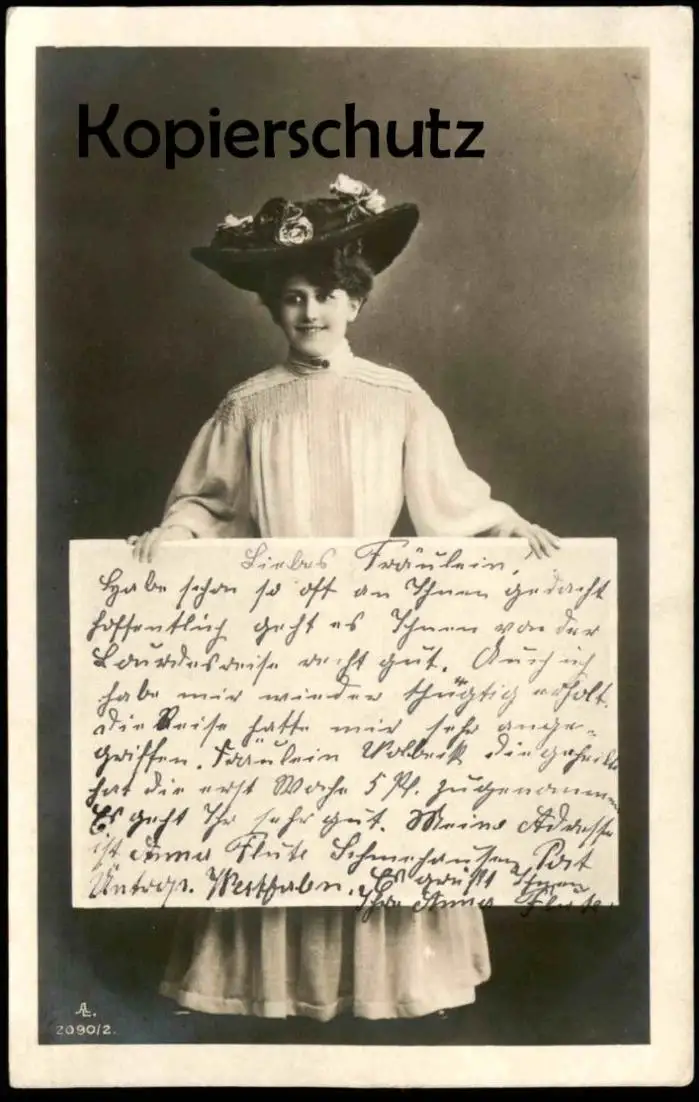 Kopierschutz
Liebes Fräulein,
Habe schon so oft an Ihnen gedacht
hoffentlich geht es Ihnen von der
Lourdesreise recht gut. Auch ich
habe mir wieder thügtig erholt.
die Reise hatte mir sehr ange-
griffen. Fräulein Volbeck die geheilt
hat die erst Woche 5 Pf. zugenommen
Es geht Ihr sehr gut. Meine Adresse
ist Anna Flüte Schmehausen, Post
Üntrop. Westfahln. Es grüßt Ihnen
Ihre Anna
AL.
2090/2.